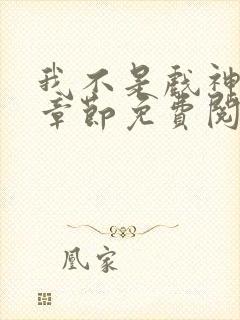 我不是戲神
章節免費閱
凰家